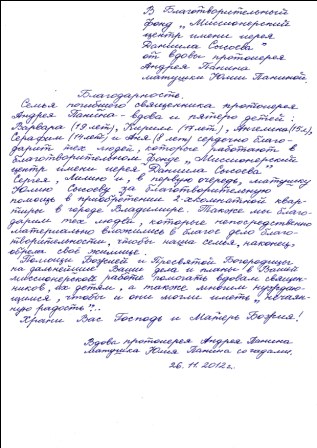 В Благотворительный
фонд „Миссионерский
центр имени иерея
Даниила Сысоева"
от вдовы протоиерея
Андрея Панина
матушки Юлии Паниной
Благодарность.
Семья погибшего священника протоиерея
Андрея Панина - вдова и пятеро детей:
Варвара (19 лет), Кирилл (17 лет), Ангелина (15 л),
Серафим (14 лет) и Аня (8 лет) сердечно благо-
дарит тех людей, которые работают в
благотворительном фонде „Миссионерский
центр имени иерея Даниила Сысоева"
Сергея, и, в первую очередь, матушку
Юлию Сысоеву за благотворительную
помощь в приобретении 2-хкомнатной квар-
тиры в городе Владимире. Также мы благо-
дарим тех людей, которые непосредственно
материально вложились в благое дело благо-
творительности, чтобы наша семья, наконец,
обрела своё жилище.
Помощи Божией и Пресвятой Богородицы
на дальнейшие Ваши дела и планы в Вашей
миссионерской работе помогать вдовам священ-
ников, их детям, а также многим нуждаю-
щимся, чтобы и они могли иметь „нечаян-
ную радость"...
Храни Вас Господь и Матерь Божия!
Вдова протоиерея Андрея Панина
Матушка Юлия Панина со чадами.
26.11.2012г.